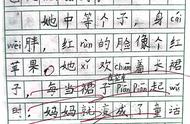 她中等个子，身cái
wēi胖，红rùn的脸像个红
苹果。她xǐ欢chuān着长裙
子，每当裙子piān piān起wǔ
时，妈妈就变成了童话